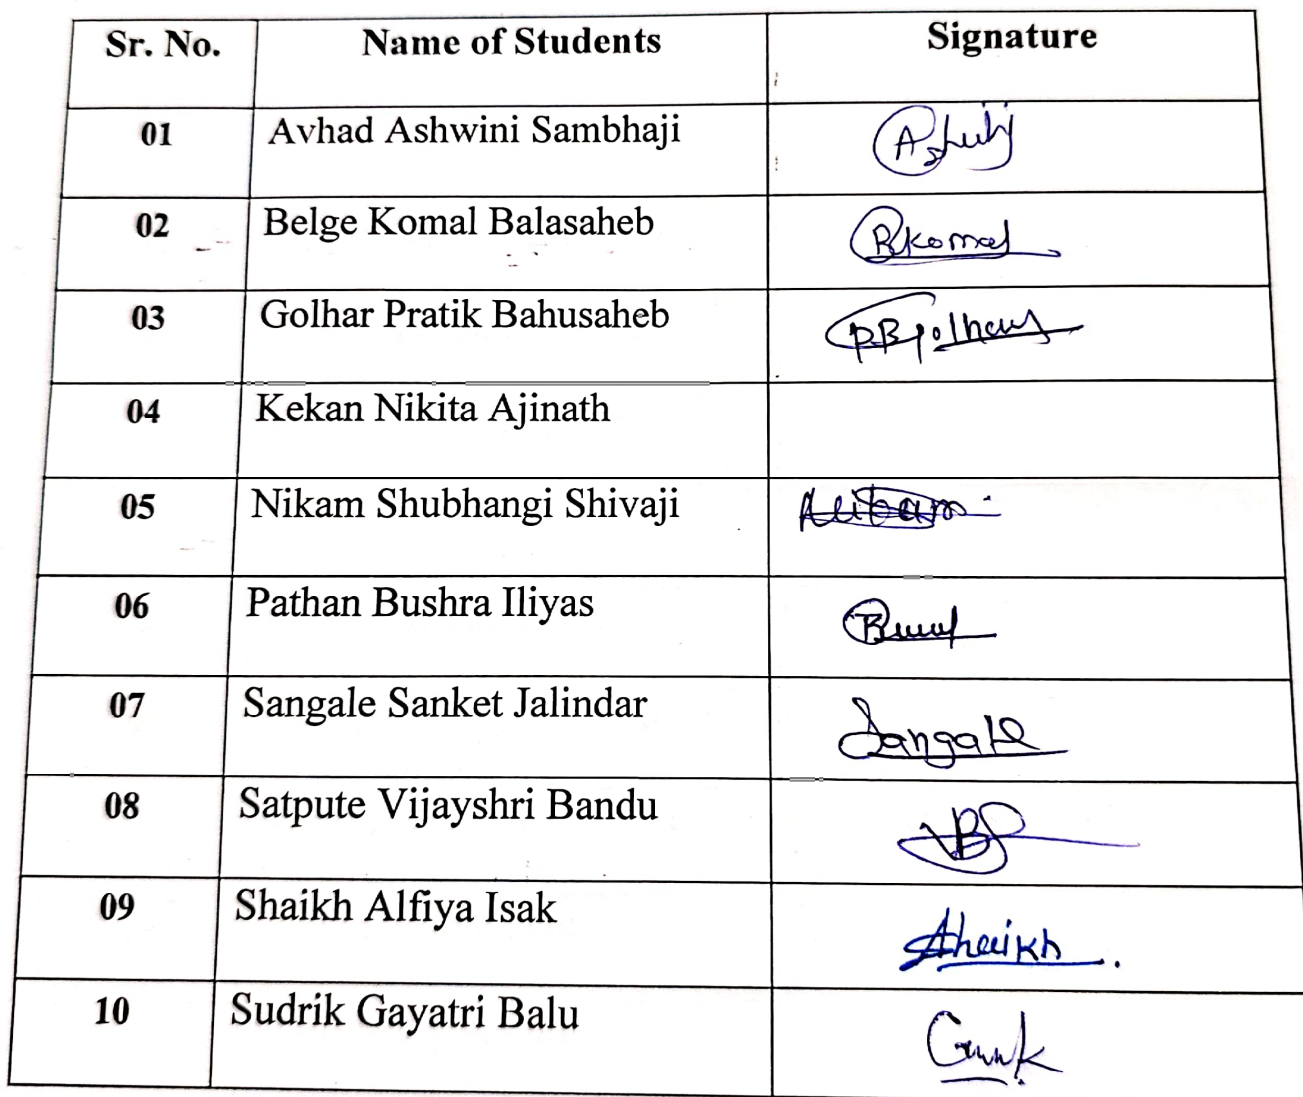 Sr. No. Name of Students Signature
01 Avhad Ashwini Sambhaji
02 Belge Komal Balasaheb BKomal
03 Golhar Pratik Bahusaheb PBGolhar
04 Kekan Nikita Ajinath
05 Nikam Shubhangi Shivaji
06 Pathan Bushra Iliyas
07 Sangale Sanket Jalindar Sangale
08 Satpute Vijayshri Bandu VBS
09 Shaikh Alfiya Isak Shaikh
10 Sudrik Gayatri Balu